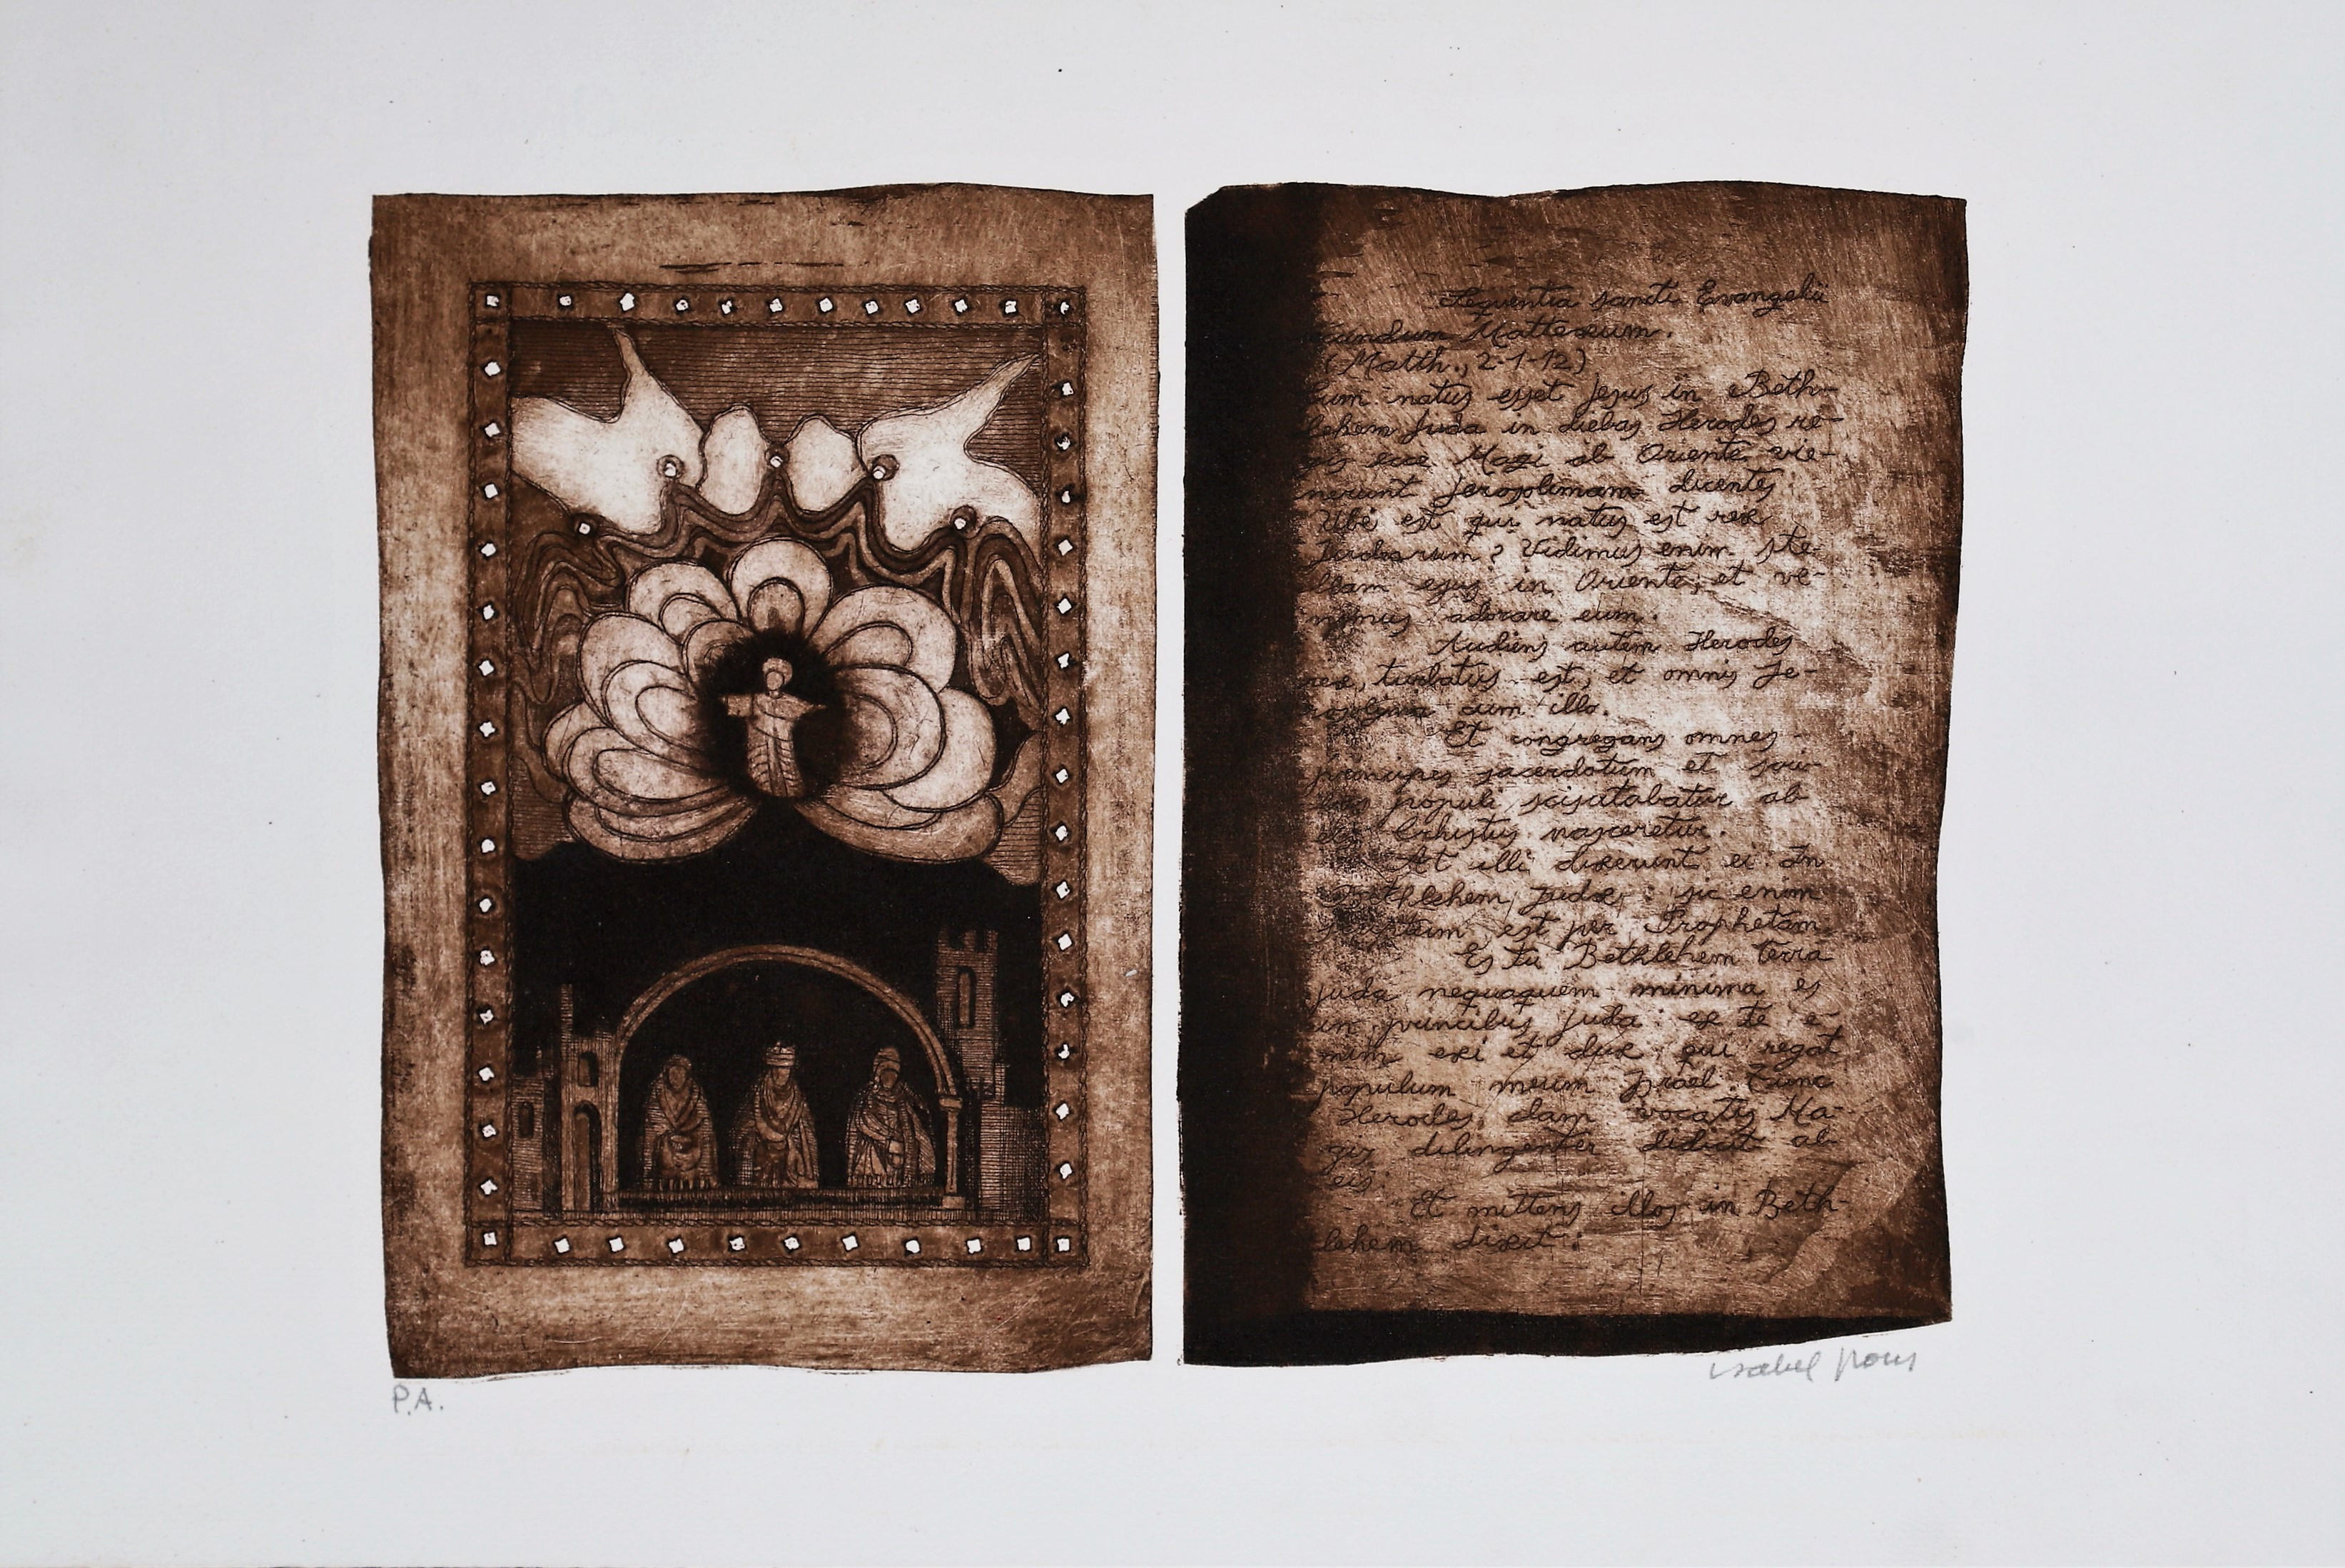 Sequentia sancti Evangelii
cundum Matteum.
(Matth., 2-1-12)
um natus esset Jesus in Beth-
lehem Juda in diebas Herodes re-
gis ecce Magi ab Oriente vie-
nerunt Jerosolimam dicentes:
Ubi est qui natus est rex
Judæorum? Vidimus enim ste-
llam ejus in Oriente, et ve-
nimus adorare eum.
Audiens autem Herodes
rex, turbatus est, et omnis Je-
rosolima cum illo.
Et congregans omnes
principes sacerdotum et scri-
bas populi, scisatabatur ab
eis Christus nasceretur.
At illi dixerunt ei: In
Bethlehem, Judæ, : sic enim
scriptum est per Prophetam
Es tu Bethlehem terra
juda nequaquem minima es
in principus juda: ex te e-
nim exi et dux, qui regat
populum meum Israel. Tunc
Herodes, clam vocatis Ma-
gis dilingenter didicit ab
eis:
Et mittens illos in Beth-
lehem dixit:
P.A.
isabel pons